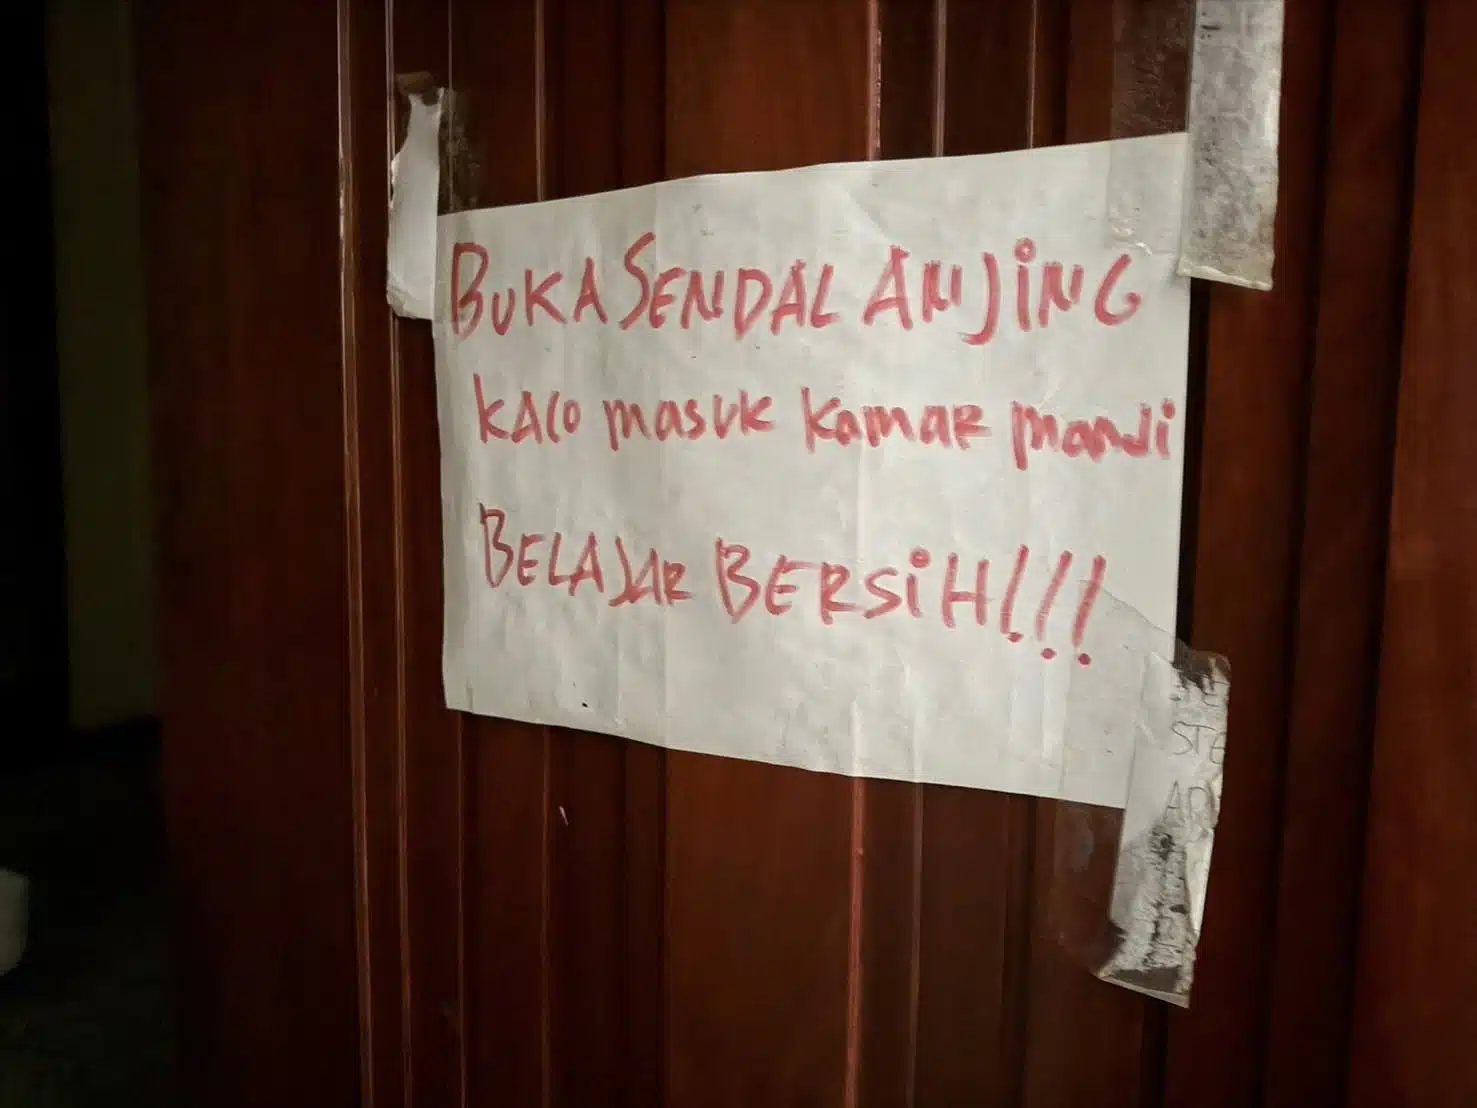 BUKA SENDAL ANJING
KALO MASUK KAMAR MANDI
BELAJAR BERSIH!!!
STE